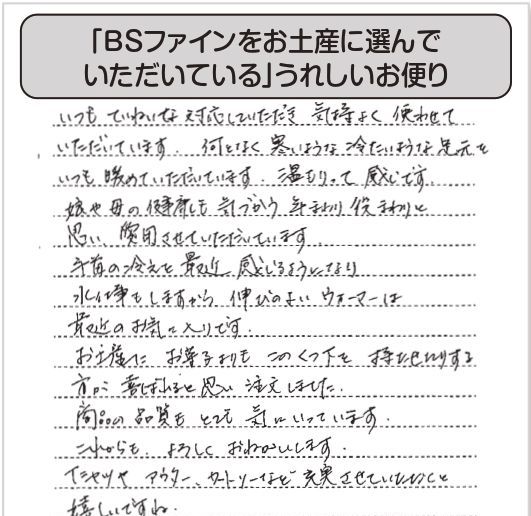 「BSファインをお土産に選んで
いただいている」うれしいお便り
いつも ていねいな対応していただき 気持よく 使わせて
いただいています. 何となく 寒いような 冷たいような 足元を
いつも 暖めていただいています. 温もりって 感じです.
娘や母の健康も 気づかう 年まわり 役まわりと
思い 愛用させていただいています.
手首の冷えを 最近 感じるようになり
水仕事もしますから 伸びのよい ウォーマーは
最近のお気に入りです.
お土産に お菓子よりも このくつ下を 持たせたりする
方が 喜ばれると思い 注文しました.
商品の品質も とても 気にいっています.
これからも よろしく おねがいします.
Tシャツや アウター、カットソーなど 充実させていただくと
嬉しいですね.